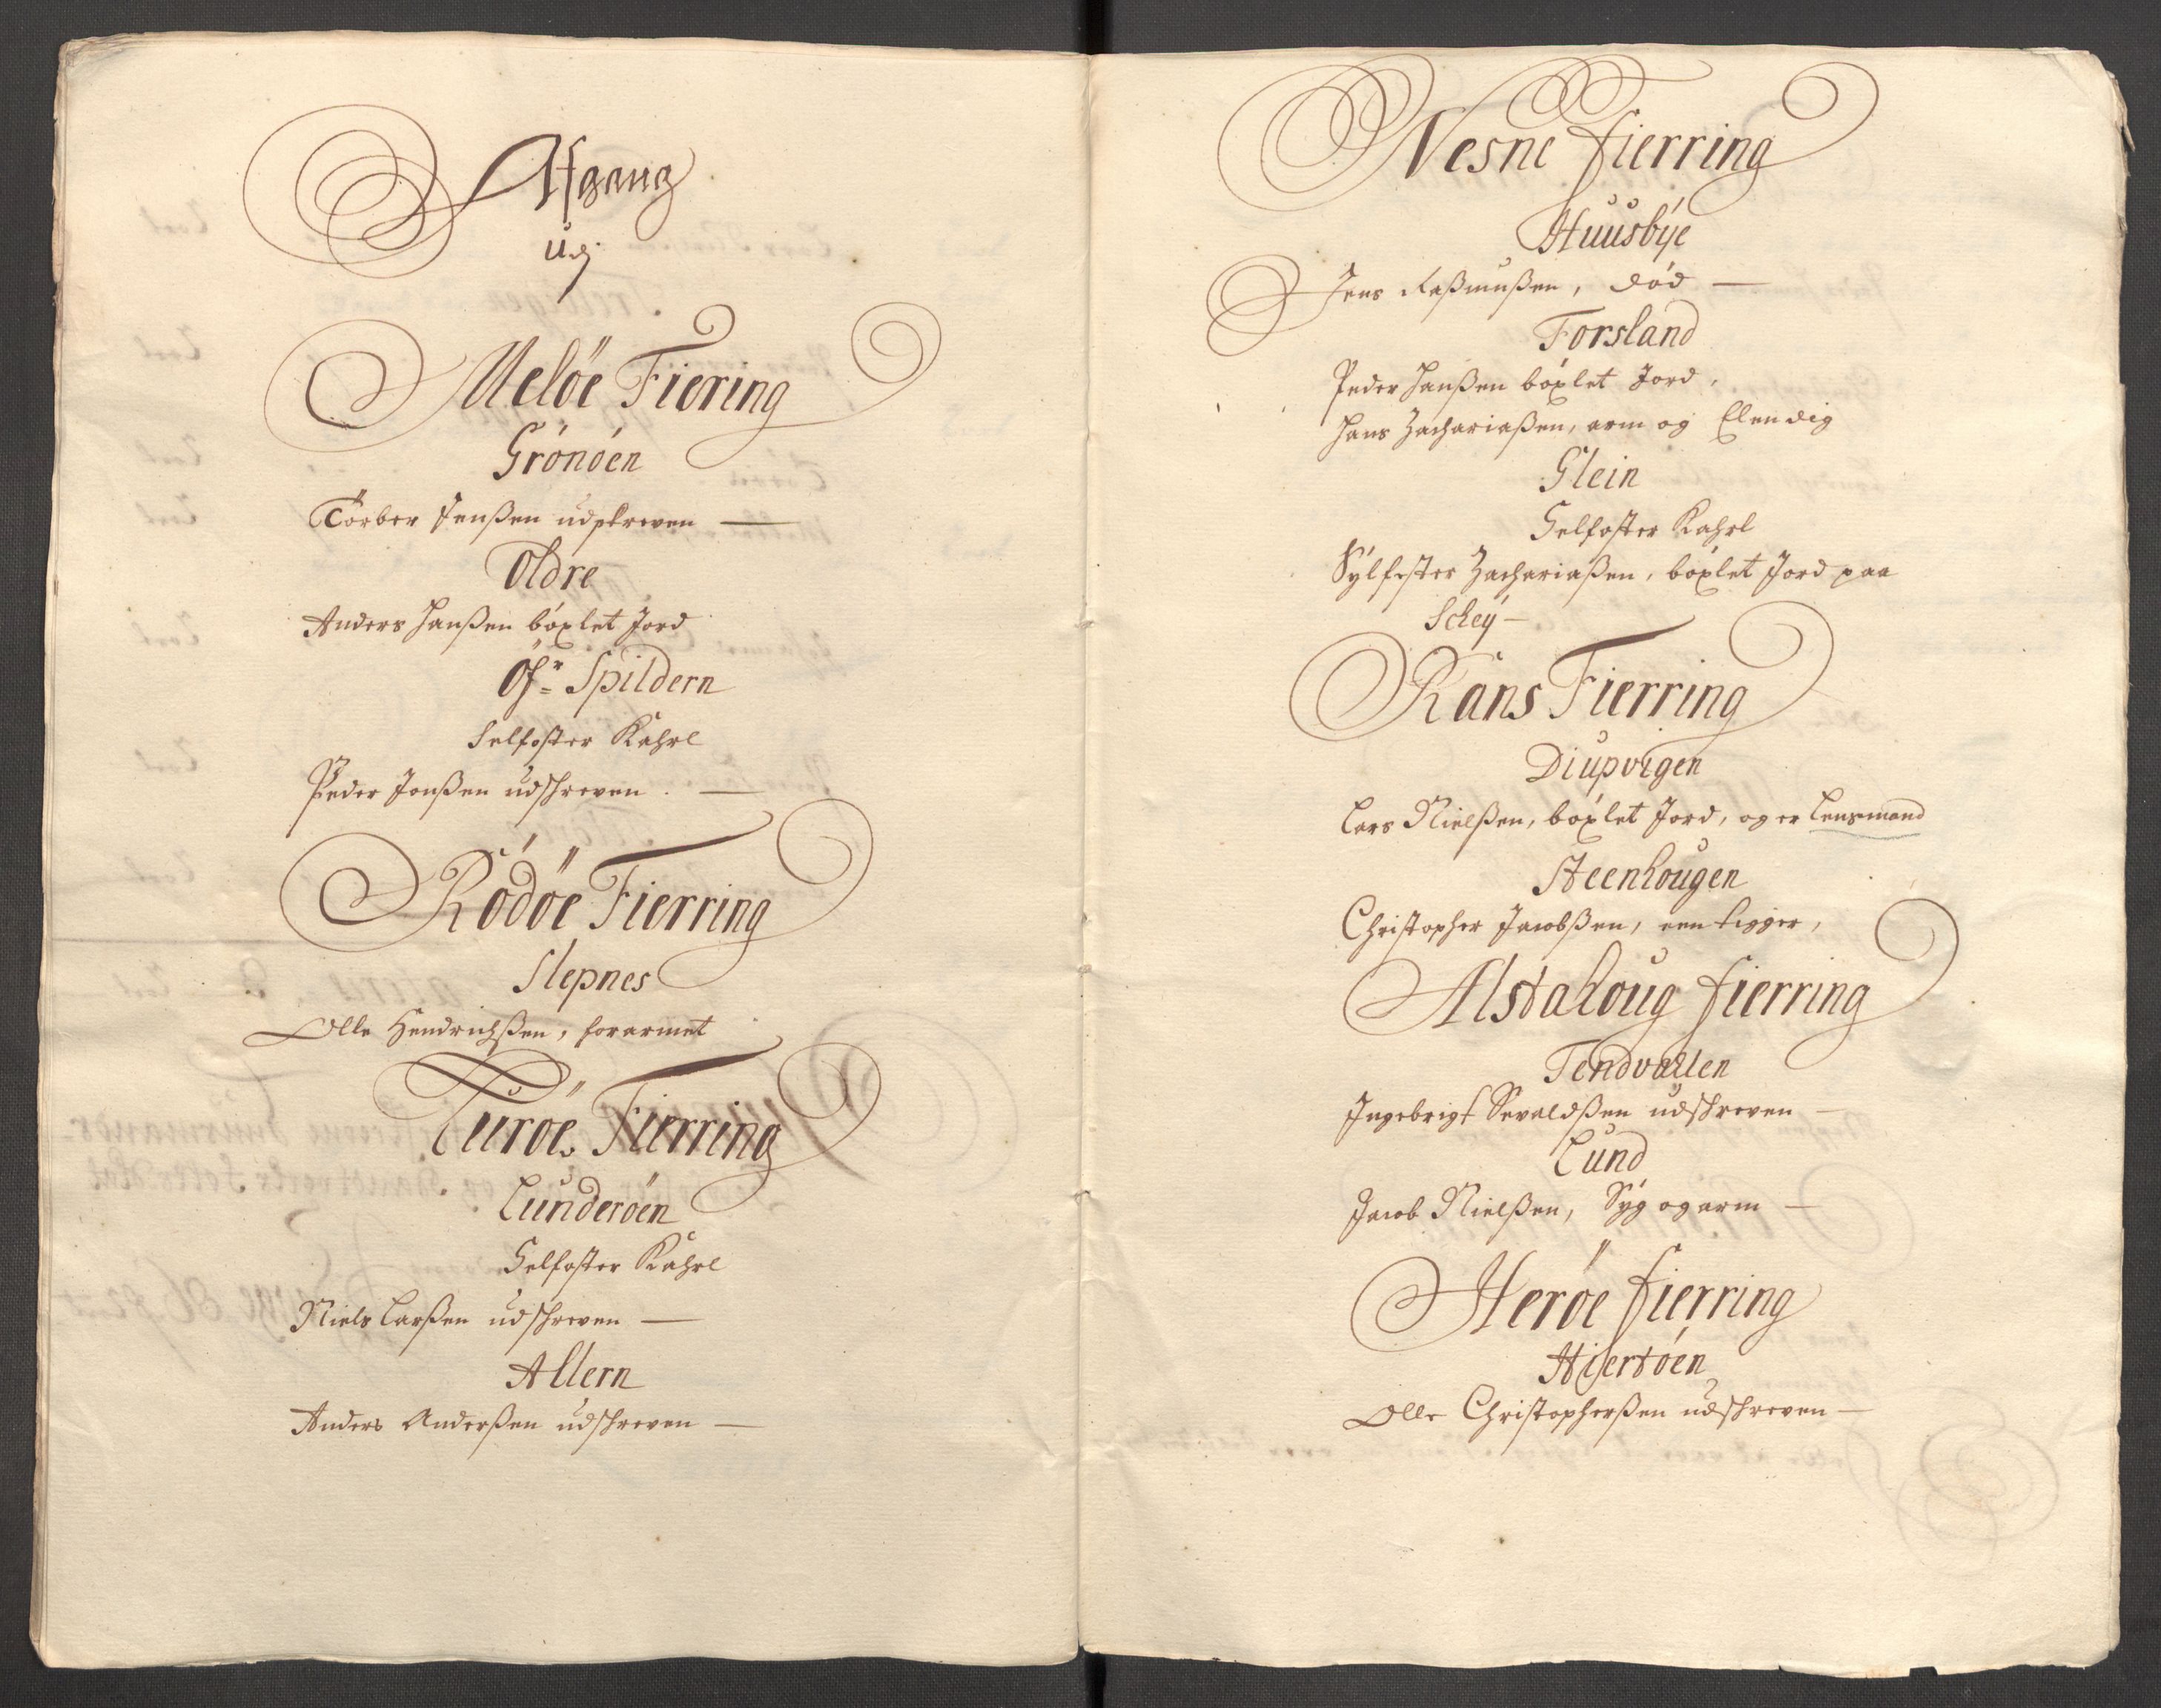 Afgang
udj
Meløe Fiering
Grönöen
Torber Jenßen udskreven —
Oldre
Anders Hanßen böxlet Jord
Öfr= Spildern
Selfoster Kahrl
Peder Jonßen udschreven —
Rödöe Fierring
Slepnes
Olle Hendrichßen, forarmet
Luröe Fierring
Lunderöen
Selfoster Kahrl
Niels Larßen udschreven —
Allern
Anders Anderßen udschreven —
Nesne fierring
Huusbÿe
Jens Raßmußen, död —
Forsland
Peder Hanßen böxlet Jord,
Hans Zachariaßen, arm og Elendig
Glein
Selfoster Kahrl
Sÿlfester Zachariaßen, böxlet Jord paa
Scheÿ —
Rans Fierring
Diupvigen
Lars Nielßen, böxlet Jord, og er Lensmand
Steenhougen
Christopher Jacobßen, een tigger,
Alstahoug fierring
Tendvallen
Ingebrigt Sevaldßen udschreven —
Lund
Jacob Nielßen, Sÿg og arm —
Heröe fierring
Hiertöen
Olle Christopherßen udschreven —